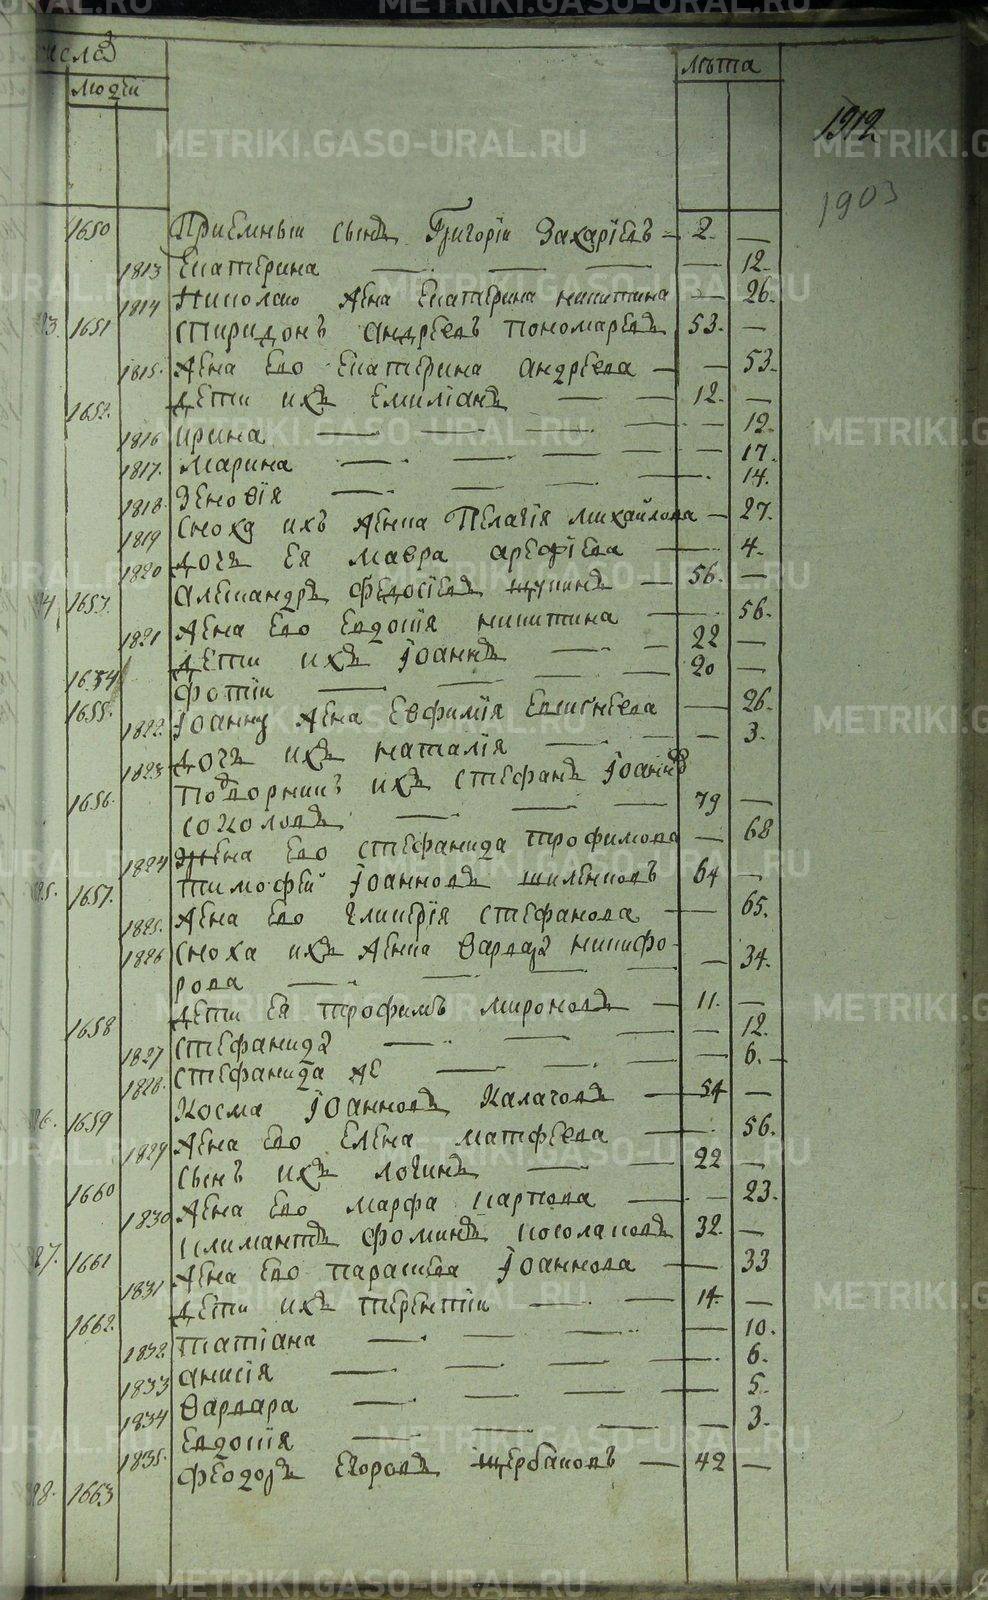 METRIKI.GASO-URAL.RU
числа
людіи
лѣта
1912
1903
1650 Приемныи сынъ Григоріи Захаріевъ — 2. —
1813 Екатерина — — — — 12.
1814 Николаю жена Екатерина никитина — 26.
1651 Спиридонъ андреевъ пономаревъ 53. —
1815. жена его Екатерина андреева — — 53.
1652. дети ихъ Емиліанъ — — 12. —
1816 ирина — — — — — 12.
1817. Марина — — — — — 17.
1818. Зеновія — — — — 14.
1819 Сноху ихъ женка Пелагія михайлова — 27.
1820 дочь ея мавра арефіева — 4.
1653. Александръ федосіевъ щукинъ — 56. —
1821 жена его Евдокія никитина — 56.
1654 дети ихъ Іоаннъ — — 22 —
1655. фотіи — — — — 20 —
1822. Іоанну жена Евфимія Евгенеева — 26.
1823 дочь ихъ наталія — — — 3.
1656. Подворникъ ихъ стефанъ Іоанновъ
соколовъ — — — 79 —
1824 жена его стефанида трофимова — 68
1657. тимофей Іоанновъ шиленковъ 64 —
1825. жена его гликерія стефанова — 65.
1826 сноха ихъ женка варвара никифо-
рова — — — — — 34.
1658 дети ея трофимъ мироновъ — 11. —
1827 стефанида — — — — 12.
1828. стефанида же — — — — 6. —
1659 Косма Іоанновъ Калачовъ — 54 —
1829 жена его Елена матфеева — 56.
1660 сынъ ихъ логинъ — — 22 —
1830 жена его марфа карпова — — 23.
1661 климантъ фоминъ косолаповъ 32. —
1831 жена его параскева Іоаннова — 33
1662. дети ихъ терентіи — — 14. —
1832. татіана — — — — 10.
1833 анисія — — — — 6.
1834 варвара — — — — 5.
1835. Евдокія — — — — 3.
1663 феодоръ Егоровъ щербаковъ — 42 —